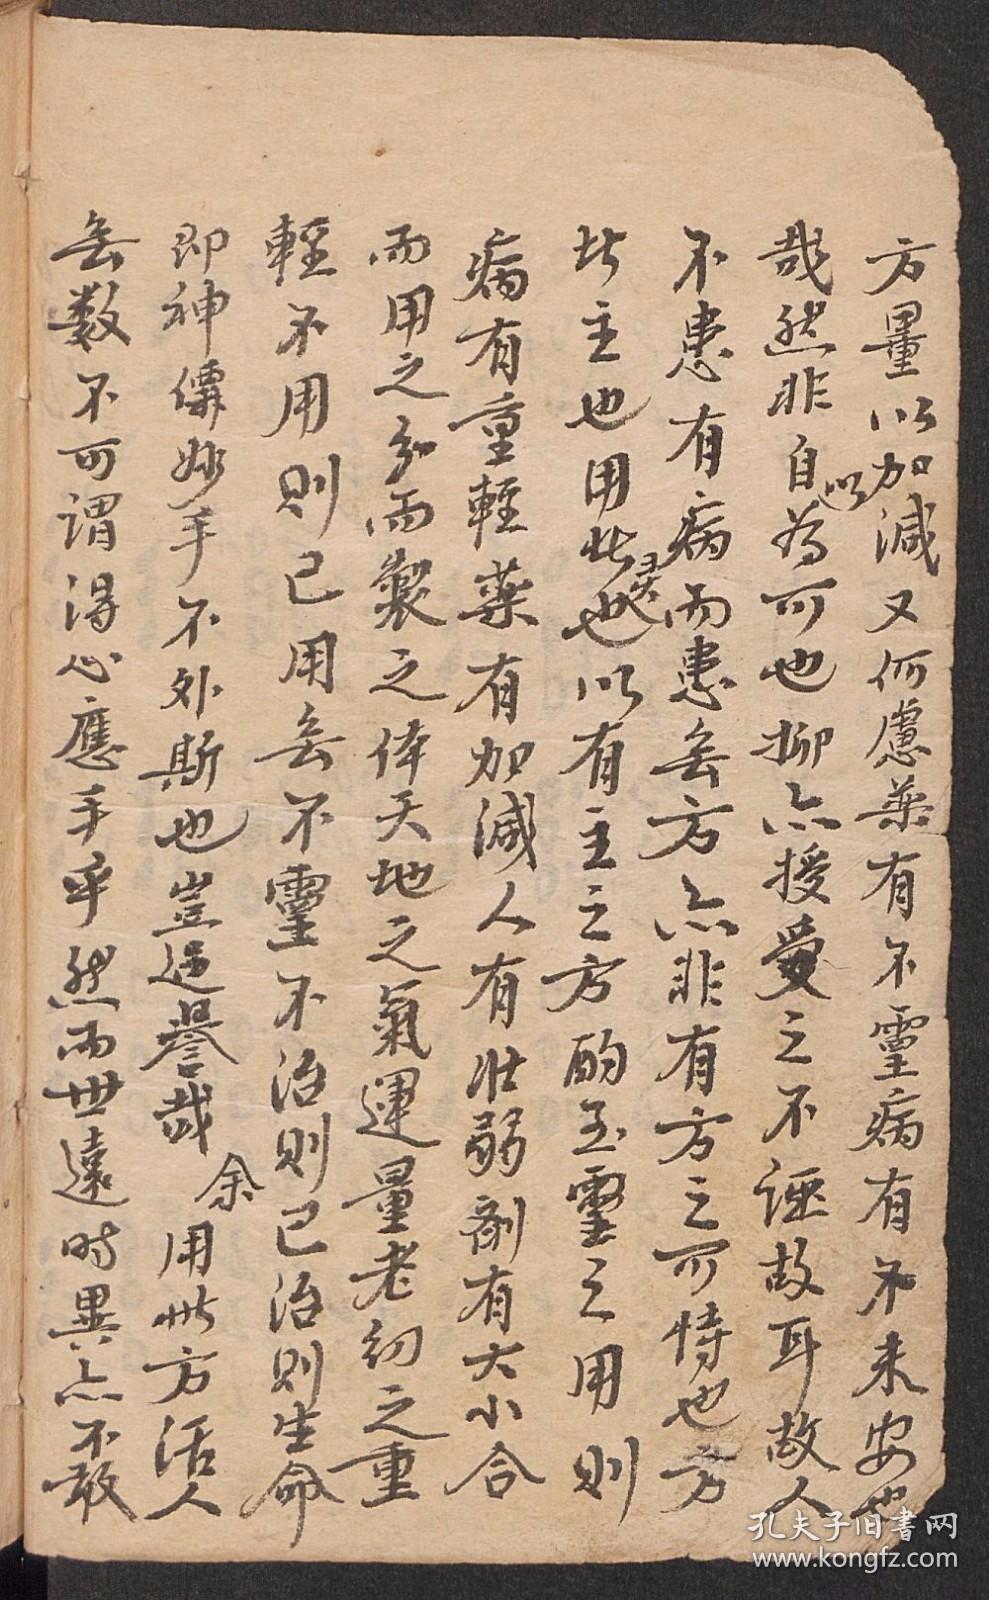 方量以加減又何慮薬有不靈病有不未安也
哉然非自以為可也抑亦授受之不誣故耳故人
不患有病而患無方亦非有方之可恃也方
皆主也用此者也以有主之方酌至靈之用則
病有重輕薬有加減人有壮弱劑有大小合
而用之分而製之体天地之氣運量老幼之重
輕不用則已用無不靈不治則已治則生命
即神僊妙手不外斯也豈過譽哉余用此方活人
無数不可謂得心應手乎然而世遠時異亦不敢
孔夫子旧書网
www.kongfz.com